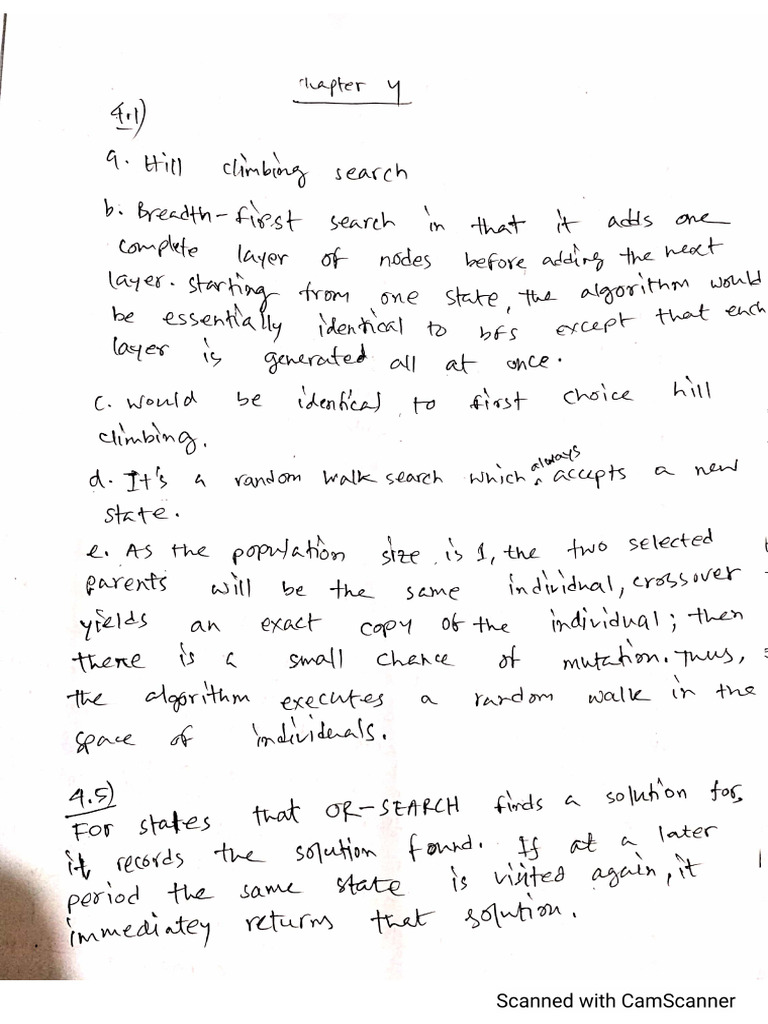 Chapter 4
4.1)
a. Hill climbing search
b. Breadth-first search in that it adds one
complete layer of nodes before adding the next
layer. starting from one state, the algorithm would
be essentially identical to bfs except that each
layer is generated all at once.
c. would be identical to first choice hill
climbing.
d. It's a random walk search which always accepts a new
state.
e. As the population size is 1, the two selected
parents will be the same individual, crossover
yields an exact copy of the individual; then
there is a small chance of mutation. Thus,
the algorithm executes a random walk in the
space of individuals.
4.5)
For states that OR-SEARCH finds a solution for,
it records the solution found. If at a later
period the same state is visited again, it
immediatey returns that solution.
Scanned with CamScanner